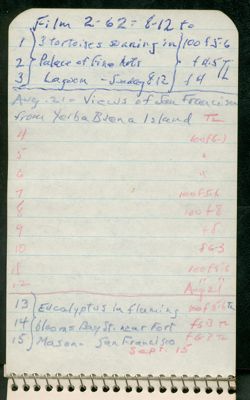 Film 2-62 = 8-12 to
1 3 tortoises sunning in 100 f 5-6
2 Palace of Fine Arts f 4.5 TL
3 Lagoon - Sunday 8 12 f 4 TL
Aug. 21 - Views of San Francisco
from Yerba Buena Island TL
4 100 f 6-3
5 "
6 "
7 " 100 f 5.6
8 100 f 8
9 f 8
10 f 6-3
11
12 Aug 21
13 Eucalyptus in flaming 100 f 5.6 TL
14 bloom = Bay St. near Fort f 6-3 TL
15 Mason - San Francisco TL
Sept. 15